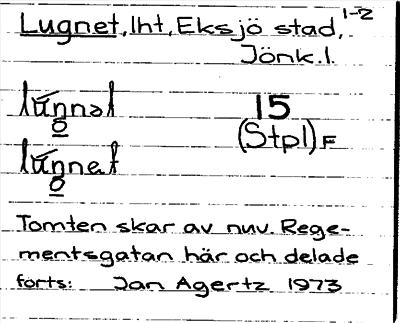 Lugnet, lht, Eksjö stad, 1-2
Jönk. l.
lúŋnəl 15
(Stpl) F
lúŋnet
Tomten skar av nuv. Rege-
mentsgatan här och delade
forts: Jan Agertz 1973